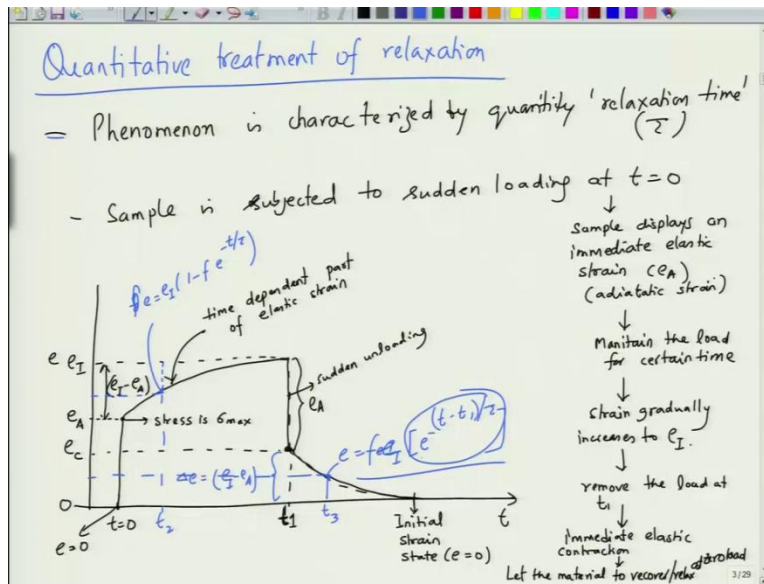 Quantitative treatment of relaxation
= Phenomenon is characterized by quantity 'relaxation time'
(τ)
- Sample is subjected to sudden loading at t=0
↓
Sample displays an
immediate elastic
strain (e_A)
(adiatatic strain)
↓
Manitain the load
for certain time
↓
strain gradually
increases to e_I.
↓
remove the load at
t1
↓
immediate elastic
contraction
↓
Let the material to recover/relax at zero load
e=e_I(1-f e^{-t/τ})
time dependent part
of elastic strain
e
e_I
(e_I-e_A)
sudden unloading
e_A
e_A
stress is σmax
e_c
e=f e_I [e^{-(t-t_1)/τ}
Δe=(e_I-e_A)
0
t=0
t_2
t1
t_3
t
e=0
Initial
strain
state (e=0)
3/29